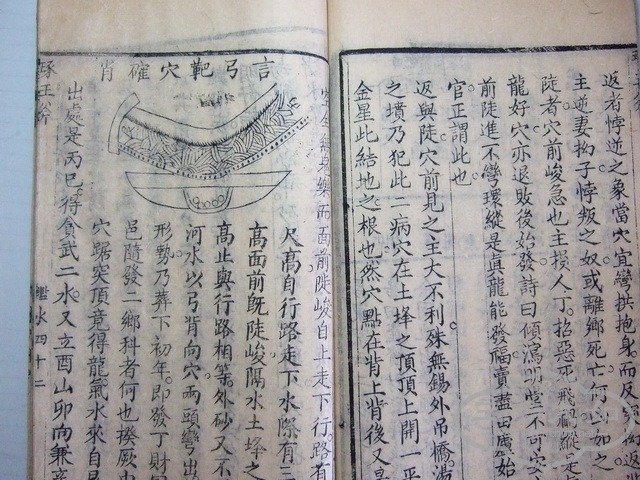 返者悖逆之象當穴宜彎拱抱身而反
主逆妻拗子悖叛之奴或離鄉死亡何如之
陡者穴前峻急也主損人丁招惡死飛禍縱是
龍好穴亦退敗後始發詩曰傾瀉明堂不可安
前陡進不彎環縱是真龍能發福賣盡田廬始
官正謂此也
返與陡穴前見之主大不利殊無錫外吊橋湯
之墳乃犯此二病穴在土埄之頂頂上開一
金星此結地之根也然穴點在背上背後又是
而面前陡峻自上走下行路有
尺高自行路走下水際有三
高面前既陡峻隔水土埄之
高止與行路相等外砂又不
河水以弓背向穴兩頭彎出
形勢乃葬下初年即發丁財
邑隨發二鄉科者何也揆厥
穴踞突頂竟得龍氣水來自
出處是丙巳得貪武二水又立酉山卯向兼
言弓靶穴確肖
琢玉斧
巒水四十二